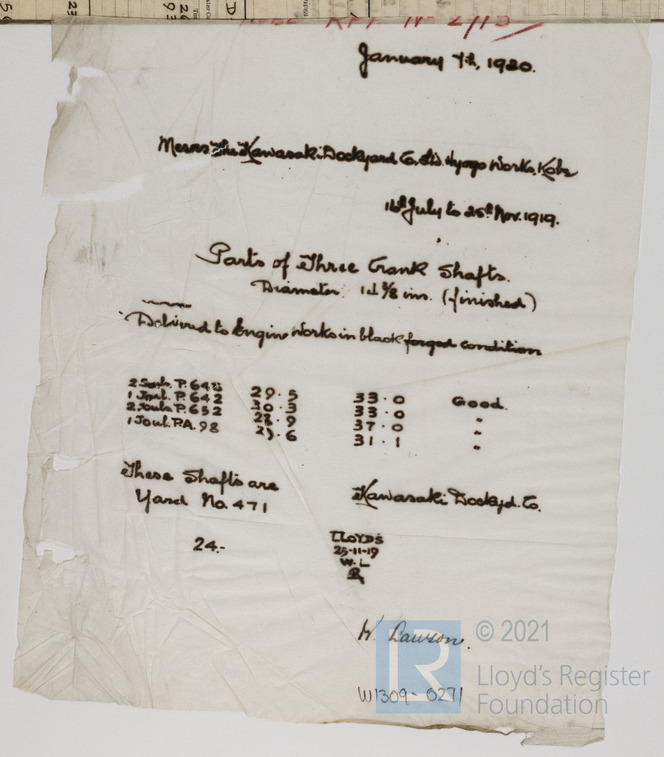 January 7th, 1920.
Messrs The Kawasaki Dockyard Co. Ltd. Hyogo Works, Kobe
16th July to 25th Nov. 1919.
Parts of Three Crank Shafts.
Diameter 14 3/8 ins. (finished)
Delivered to Engine Works in black forged condition
P. 642 29.5 33.0 Good.
1 Jnl. P. 642 30.3 33.0 "
P. 652 28.9 37.0 "
1 Jnl. P.A. 98 .6 31.1 "
These Shafts are
Yard No. 471
Kawasaki Dockyd. Co.
24.-
LLOYD'S
25-11-19
W.L
W. Lawson.
W1309-0271
LR
© 2021
Lloyd's Register
Foundation